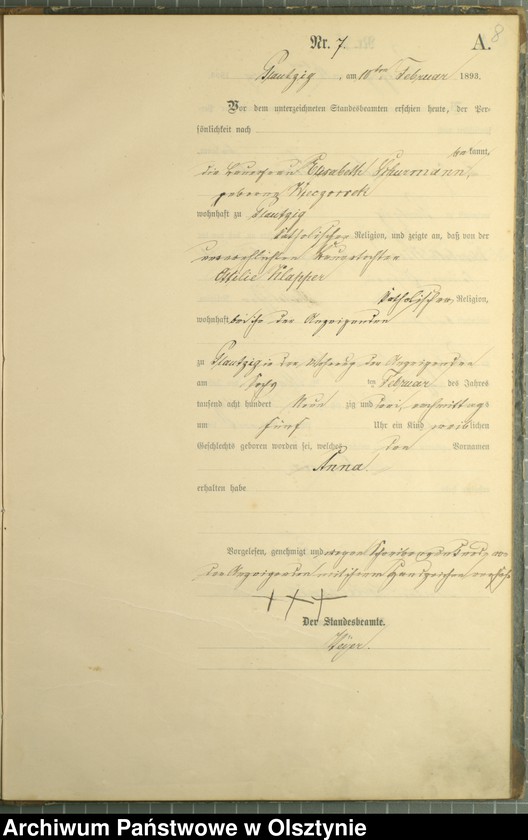 Nr. 7 A. 8
Plautzig, am 10ten Februar 1893.
Vor dem unterzeichneten Standesbeamten erschien heute, der Per-
sönlichkeit nach
be kannt,
die Bauerfrau Elisabeth Schurmann,
geborene
wohnhaft zu Plautzig
katholischer Religion, und zeigte an, daß von der
unverehelichten Bauertochter
Ottilie Klapper
katholischer Religion,
wohnhaft bei der Anzeigenden
zu Plautzig in der Wohnung der Anzeigenden
am ten Februar des Jahres
tausend acht hundert Neun zig und drei, nachmittags
um fünf Uhr ein Kind weiblichen
Geschlechts geboren worden sei, welches den Vornamen
Anna
erhalten habe
Vorgelesen, genehmigt und wegen Schreibensunkunde von
der Anzeigenden mit ihrem Handzeichen versehen
+++
Der Standesbeamte.
Archiwum Państwowe w Olsztynie